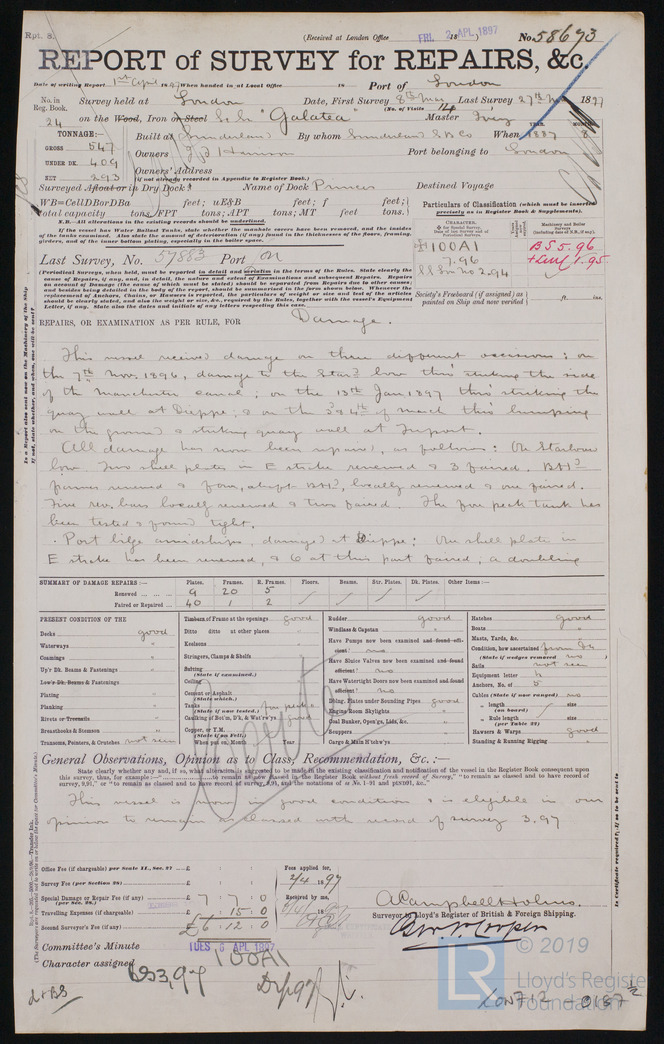 Rpt. 8.
(Received at London Office FRI. 2 APL 1897)
No. 58693
REPORT of SURVEY for REPAIRS, &c.
Date of writing Report 1st April 1897 When handed in at Local Office 18 Port of London
No. in Reg. Book. 24
Survey held at London Date, First Survey 8th Mar Last Survey 27th 1897
(No. of Visits 14)
on the Wood, Iron or Steel S.S. "Galatea" Master Ivey
TONNAGE:—
GROSS 547
UNDER DK. 409
NET 293
Built at Sunderland By whom Sunderland S B Co When 1887 8
YEAR. MONTH.
Owners Harrison Port belonging to London
Owners' Address
(if not already recorded in Appendix to Register Book.)
Surveyed Afloat or in Dry Dock? Name of Dock Princes Destined Voyage
WB=CellDBorDBa feet; uE&B feet; f feet;
total capacity tons; FPT tons; APT tons; MT feet tons.
N.B.—All alterations in the existing records should be underlined.
If the vessel has Water Ballast Tanks, state whether the manhole covers have been removed, and the insides of the tanks examined. Also state the amount of deterioration (if any) found in the thicknesses of the floors, framing, girders, and of the inner bottom plating, especially in the boiler space.
Particulars of Classification (which must be inserted precisely as in Register Book & Supplements).
CHARACTER.
Machinery and Boiler Surveys
100A1
7.96
SS Lon No 2.94
BS 5.96
+LMC 1.95
Last Survey, No. 57583 Port on
(Periodical Surveys, when held, must be reported in detail and seriatim in the terms of the Rules. State clearly the cause of Repairs, if any, and, in detail, the nature and extent of Examinations and subsequent Repairs. Repairs on account of Damage (the cause of which must be stated) should be separated from Repairs due to other causes; and besides being detailed in the body of the report, should be summarised in the form shown below. Whenever the replacement of Anchors, Chains, or Hawsers is reported, the particulars of weight or size and test of the articles should be clearly stated, and also the weight or size, &c., required by the Rules, together with the vessel's Equipment Letter, if any. State also the dates and initials of any letters respecting this case.
Society's Freeboard (if assigned) as painted on Ship and now verified ft. ins.
REPAIRS, OR EXAMINATION AS PER RULE, FOR Damage.
This vessel received damage on three different occasions: on
the 7th Nov. 1896, damage to the Starbd bow thro' striking the side
of the Manchester canal; on the 13th Jan 1897 thro' striking the
quay wall at Dieppe; & on the 3rd & 4th of March thro' bumping
on the ground & striking quay wall at
All damage has now been repaired, as follows: On Starboard
bow. Two shell plates in E strake renewed & 3 faired.
frames renewed & four, abaft BHD, locally renewed & one faired.
Five rev. bars locally renewed & two faired. The fore peak tank has
been tested & found tight.
Port bilge amidships, damaged at Dieppe: One shell plate in
E strake has been renewed, & 6 at this part faired, a doubling
SUMMARY OF DAMAGE REPAIRS:— Plates. Frames. R. Frames. Floors. Beams. Str. Plates. Dk. Plates. Other Items:—
Renewed 9 20 5
Faired or Repaired 40 1 2
PRESENT CONDITION OF THE
Decks good
Waterways "
Coamings "
Up'r Dk. Beams & Fastenings "
Low'r Dk. Beams & Fastenings "
Plating "
Planking "
Rivets or Treenails "
Breasthooks & Stemson "
Transoms, Pointers, & Crutches not seen
Timbers, of Frame at the openings good
Ditto ditto at other places "
Keelsons "
Stringers, Clamps & Shelfs "
Salting
(State if examined.)
Ceiling
Cement or Asphalt
(State which.)
Tanks fore peak
(State if now tested.) good
Caulking of Bot'm, D'k, & Wat'rw'ys
Copper, or Y.M.
(State if on Felt.)
When put on, Month Year
Rudder good
Windlass & Capstan "
Have Pumps now been examined and found efficient? no
Have Sluice Valves now been examined and found efficient? no
Have Watertight Doors now been examined and found efficient? no
Dblng. Plates under Sounding Pipes good
Engine Room Skylights "
Coal Bunker, Open'gs, Lids, &c. "
Scuppers "
Cargo & Main H'tchw'ys "
Hatches good
Boats "
Masts, Yards, &c. "
Condition, how ascertained from Dk
(State if wedges removed) no
Sails not seen
Equipment letter h
Anchors, No. of 5
Cables (State if now ranged) no
" length (on board) size
" Rule length (per Table 22) size
Hawsers & Warps good
Standing & Running Rigging "
General Observations, Opinion as to Class, Recommendation, &c.:—
State clearly whether any and, if so, what alteration is suggested to be made in the existing classification and notification of the vessel in the Register Book consequent upon this survey, thus, for example:—
This vessel is now in good condition & is eligible in our
opinion to remain as classed with record of survey 3,97
Office Fee (if chargeable) per Scale II., Sec. 27 £
Survey Fee (per Section 28) £
Special Damage or Repair Fee (if any) (per Sec. 28.) £ 7 7 0
Travelling Expenses (if chargeable) £ 15.0
Second Surveyor's Fee (if any) £ 6 12.0
Fees applied for, 2/4 1897
Received by me,
A Campbell Holms.
Surveyor to Lloyd's Register of British & Foreign Shipping.
Geo. W. Cooper
Committee's Minute TUES 6 APL 1897
Character assigned 100A1
3,97
© 2019
LR
Lloyd's Register
Foundation
LON712-0187